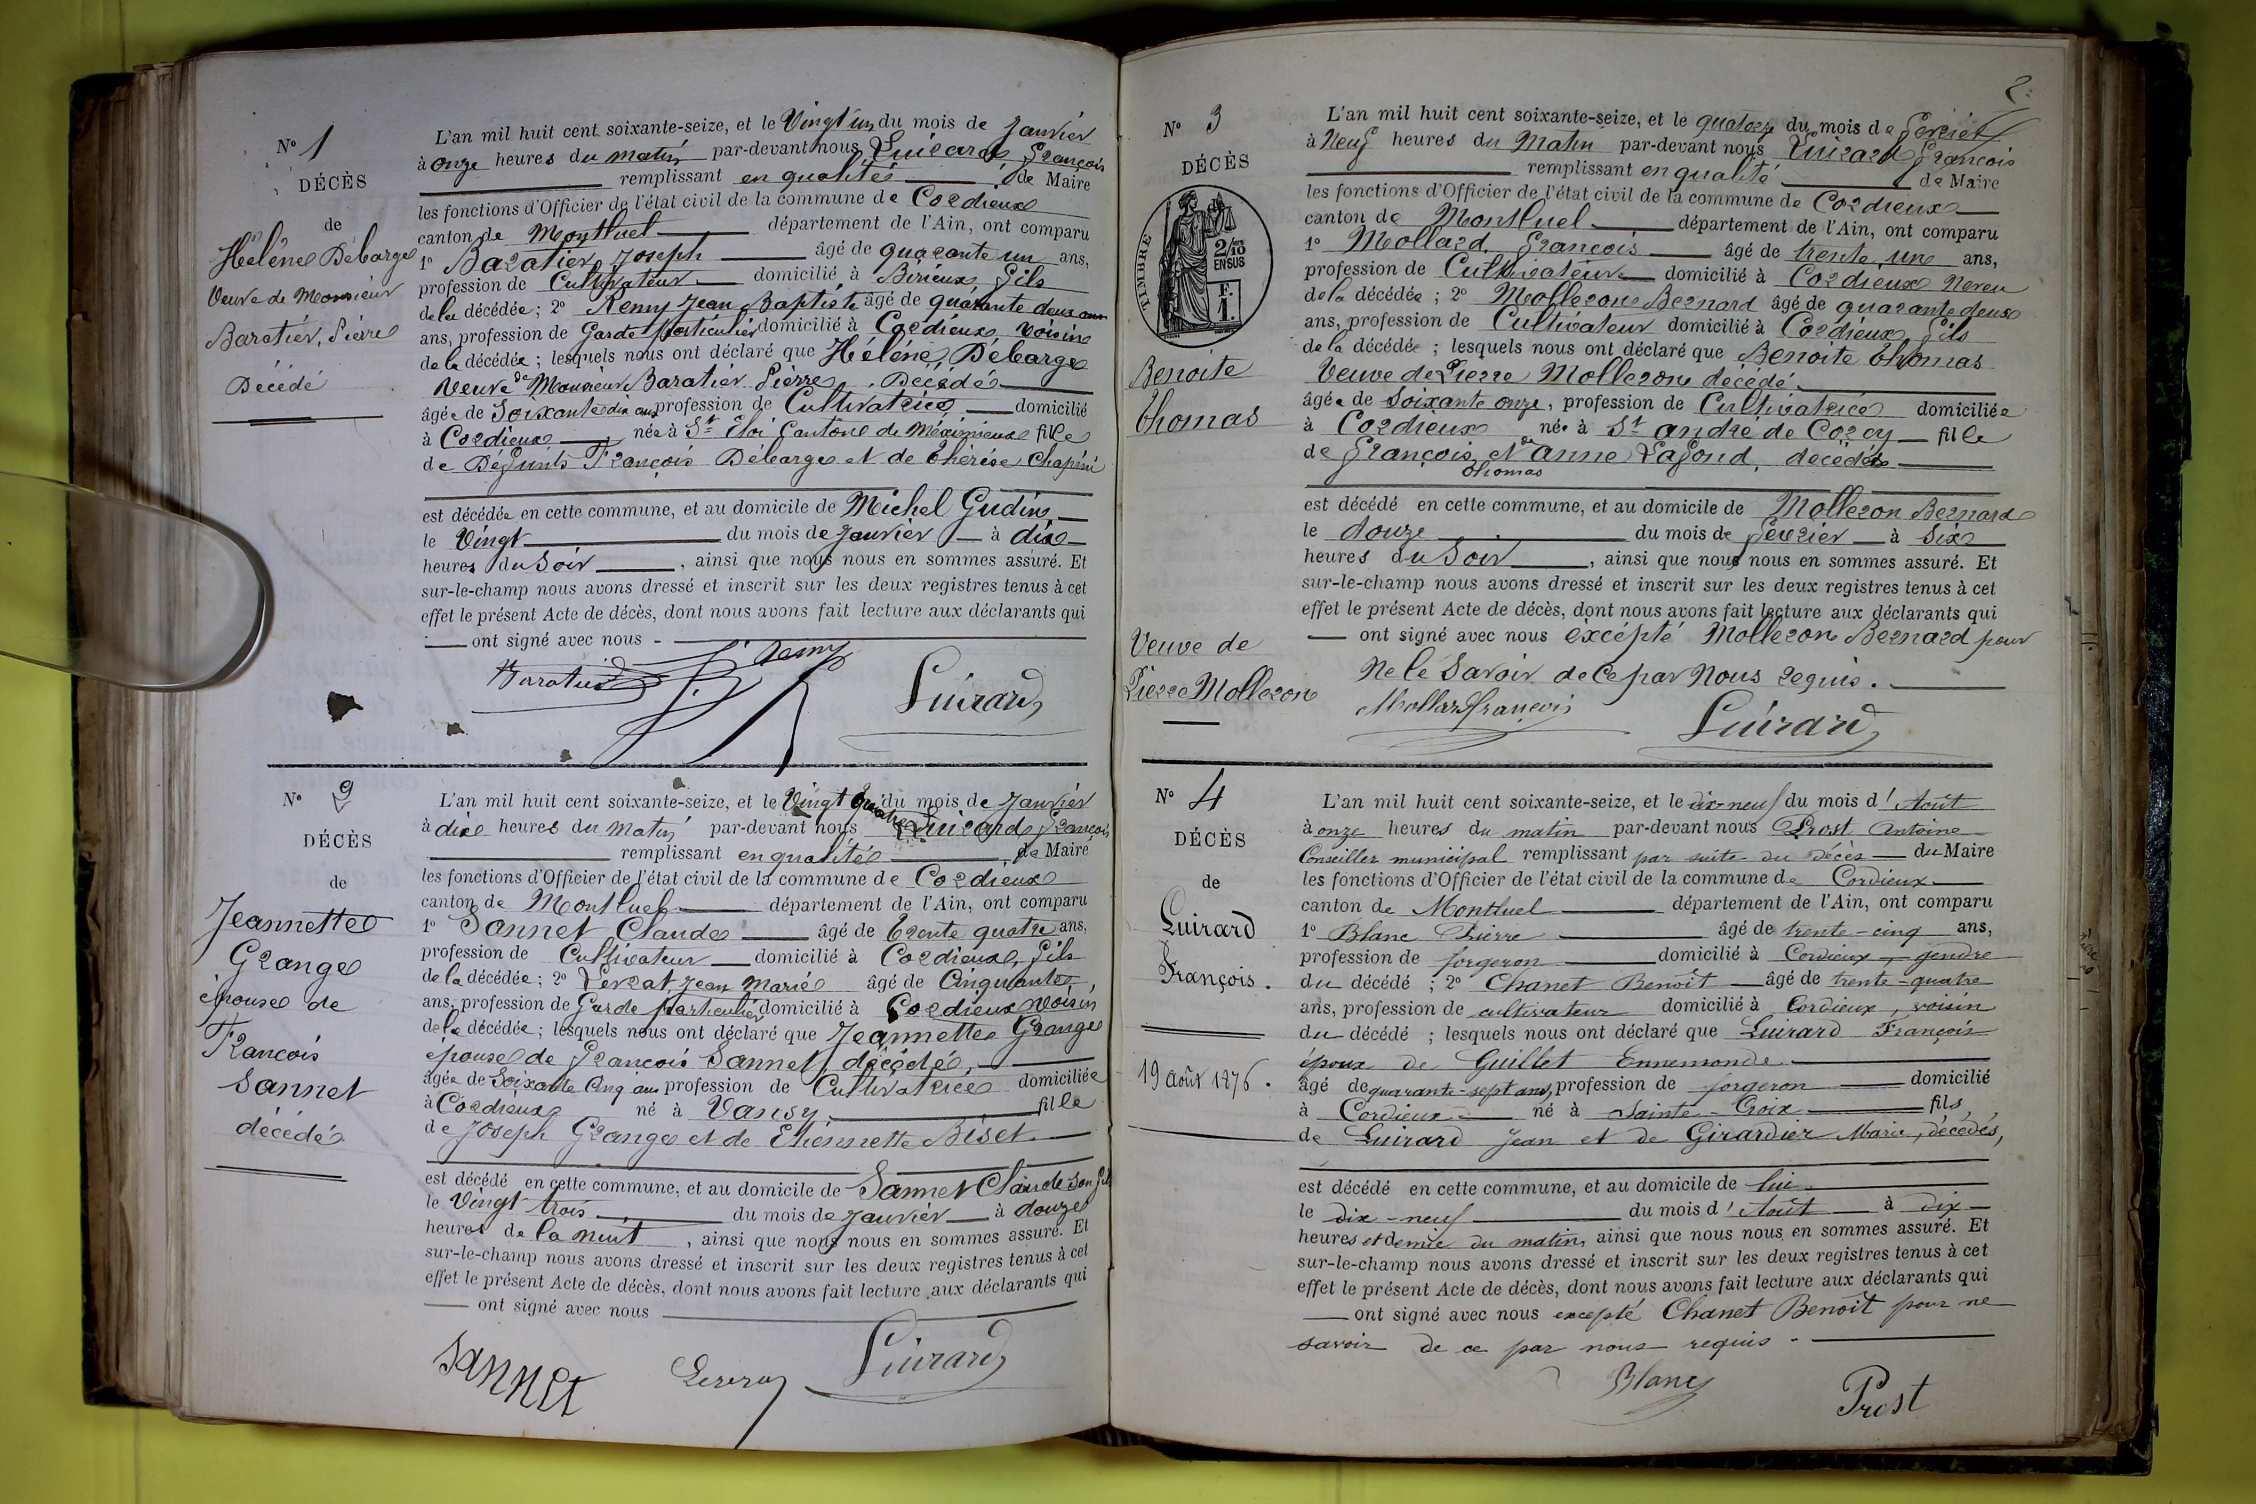 N° 1
DÉCÈS
de
Hélène Débarge
Veuve de Monsieur
Baratier, Pierre
Décédé
L'an mil huit cent soixante-seize, et le Vingt un du mois de Janvier
à onze heures du matin par-devant nous Luirard François
remplissant en qualités de Maire
les fonctions d'Officier de l'état civil de la commune de Cordieux
canton de Montluel département de l'Ain, ont comparu
1° Baratier Joseph âgé de quarante un ans,
profession de Cultivateur domicilié à Birieux, fils
de la décédée ; 2° Remy Jean Baptiste âgé de quarante deux ans
ans, profession de Garde particulier domicilié à Cordieux voisin
de la décédée ; lesquels nous ont déclaré que Hélène Débarge
Veuve de Monsieur Baratier Pierre, Décédé
âgée de Soixante dix ans profession de Cultivatrice domicilié
à Cordieux née à St Eloi Cantone de Méximieux fille
de Défunts François Débarge et de Thérèse Chapini
est décédée en cette commune, et au domicile de Michel Gudin
le Vingt du mois de Janvier à dix
heures du Soir , ainsi que nous nous en sommes assuré. Et
sur-le-champ nous avons dressé et inscrit sur les deux registres tenus à cet
effet le présent Acte de décès, dont nous avons fait lecture aux déclarants qui
ont signé avec nous
Baratier Remy
Luirard
N° 2
DÉCÈS
de
Jeannette
Grange
épouse de
François
Sannet
décédé
L'an mil huit cent soixante-seize, et le Vingt quatre du mois de Janvier
à dix heures du matin par-devant nous Luirard François
remplissant en qualité de Maire
les fonctions d'Officier de l'état civil de la commune de Cordieux
canton de Montluel département de l'Ain, ont comparu
1° Sannet Claude âgé de trente quatre ans,
profession de Cultivateur domicilié à Cordieux, fils
de la décédée ; 2° Jean Marie âgé de Cinquante
ans, profession de Garde particulier domicilié à Cordieux voisin
de la décédée ; lesquels nous ont déclaré que Jeannette Grange
épouse de François Sannet, décédé,
âgée de Soixante Cinq ans profession de Cultivatrice domiciliée
à Cordieux né à Vansy fille
de Joseph Grange et de Etiennette Biset
est décédé en cette commune, et au domicile de Sannet Claude son fils
le Vingt trois du mois de Janvier à douze
heures de la nuit , ainsi que nous nous en sommes assuré. Et
sur-le-champ nous avons dressé et inscrit sur les deux registres tenus à cet
effet le présent Acte de décès, dont nous avons fait lecture aux déclarants qui
ont signé avec nous
SANNET
Luirard
2
N° 3
DÉCÈS
TIMBRE
2/10 ENSUS
F.
1.
Benoite
thomas
Veuve de
Pierre Molleron
L'an mil huit cent soixante-seize, et le quatorze du mois de Février
à Neuf heures du Matin par-devant nous Luirard François
remplissant en qualité de Maire
les fonctions d'Officier de l'état civil de la commune de Cordieux
canton de Montluel département de l'Ain, ont comparu
1° Mollard François âgé de trente une ans,
profession de Cultivateur domicilié à Cordieux Neveu
de la décédée ; 2° Molleron Bernard âgé de quarante deux
ans, profession de Cultivateur domicilié à Cordieux, fils
de la décédée ; lesquels nous ont déclaré que Benoite thomas
Veuve de Pierre Molleron décédé
âgée de Soixante onze, profession de Cultivatrice domiciliée
à Cordieux née à St andré de Corcy fille
de François thomas et de anne Lafond, décédés
est décédé en cette commune, et au domicile de Molleron Bernard
le douze du mois de Février à Six
heures du Soir , ainsi que nous nous en sommes assuré. Et
sur-le-champ nous avons dressé et inscrit sur les deux registres tenus à cet
effet le présent Acte de décès, dont nous avons fait lecture aux déclarants qui
ont signé avec nous excépté Molleron Bernard pour
Ne le Savoir de ce par Nous requis.
Mollard françois
Luirard
N° 4
DÉCÈS
de
Luirard
François.
19 Août 1876.
L'an mil huit cent soixante-seize, et le dix-neuf du mois d'Août
à onze heures du matin par-devant nous Prost Antoine
Conseiller municipal remplissant par suite du Décès du Maire
les fonctions d'Officier de l'état civil de la commune de Cordieux
canton de Montluel département de l'Ain, ont comparu
1° Blanc Pierre âgé de trente-cinq ans,
profession de forgeron domicilié à Cordieux, gendre
du décédé ; 2° Chanet Benoît âgé de trente-quatre
ans, profession de cultivateur domicilié à Cordieux, voisin
du décédé ; lesquels nous ont déclaré que Luirard François
époux de Guillet Ennemonde
âgé de quarante-sept ans, profession de forgeron domicilié
à Cordieux né à Sainte-Croix fils
de Luirard Jean et de Girardier Marie, décédés,
est décédé en cette commune, et au domicile de lui
le dix-neuf du mois d'Août à dix
heures et demie du matin, ainsi que nous nous en sommes assuré. Et
sur-le-champ nous avons dressé et inscrit sur les deux registres tenus à cet
effet le présent Acte de décès, dont nous avons fait lecture aux déclarants qui
ont signé avec nous excepté Chanet Benoît pour ne
savoir de ce par nous requis.
Blanc
Prost